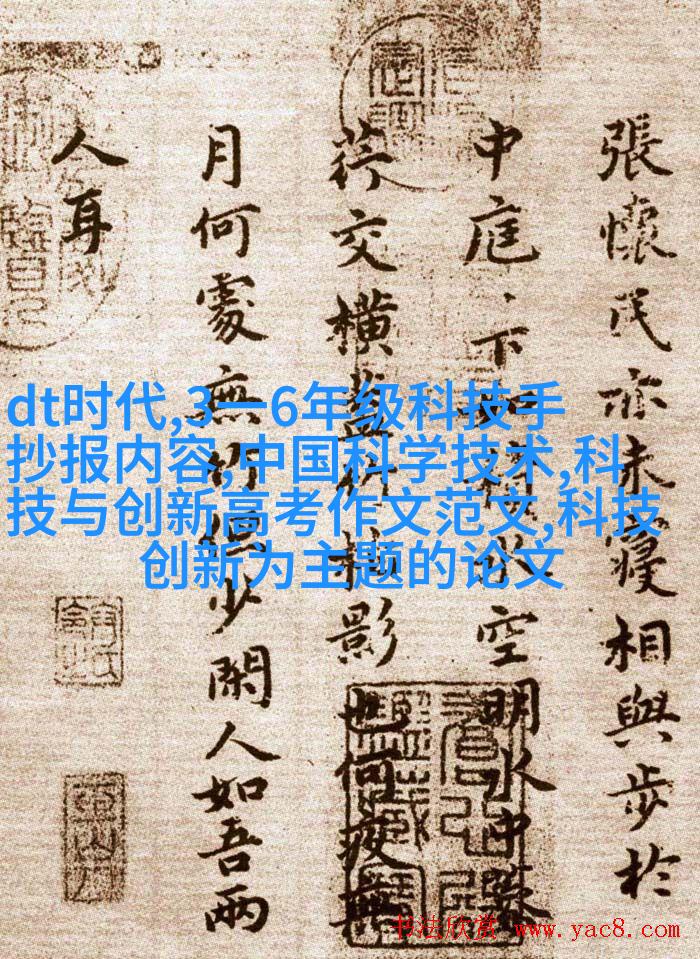 張懷民亦未寢相與步於
中庭、下如積水空明水中藻
荇交橫蓋竹柏影也何夜無
月何處無竹少閑人如吾兩
人耳
dt时代,3一6年级科技手
抄报内容,中国科学技术,科
技与创新高考作文范文,科技
创新为主题的论文
书法欣赏 www.yac8.com